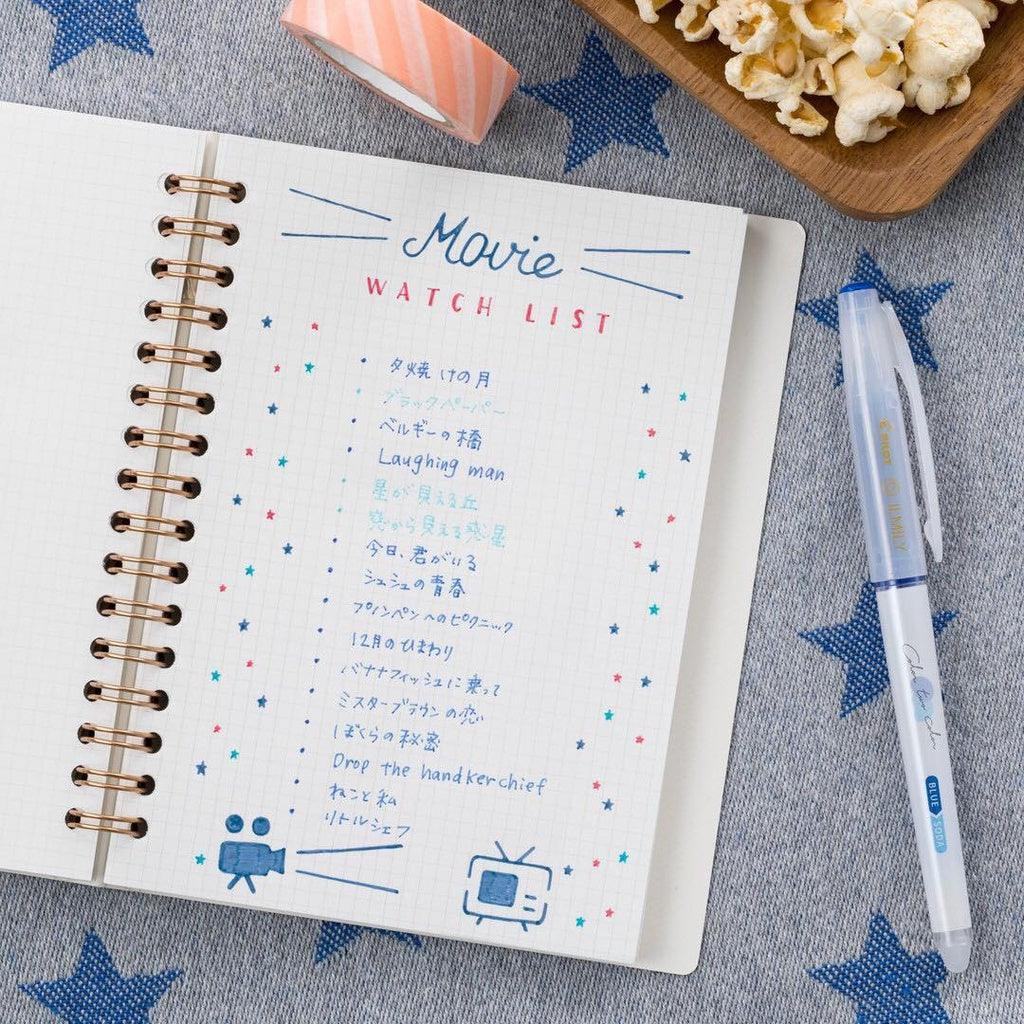 Movie
WATCH LIST
夕焼けの月
ブラックペーパー
ベルギーの橋
Laughing man
星が見える丘
窓から見える惑星
今日、君がいる
シュシュの青春
プノンペンへのピクニック
12月のひまわり
バナナフィッシュに乗って
ミスターブラウンの恋
ぼくらの秘密
Drop the handkerchief
ねこと私
リトルシェフ
PILOT ILMILY
color two color
BLUE SODA